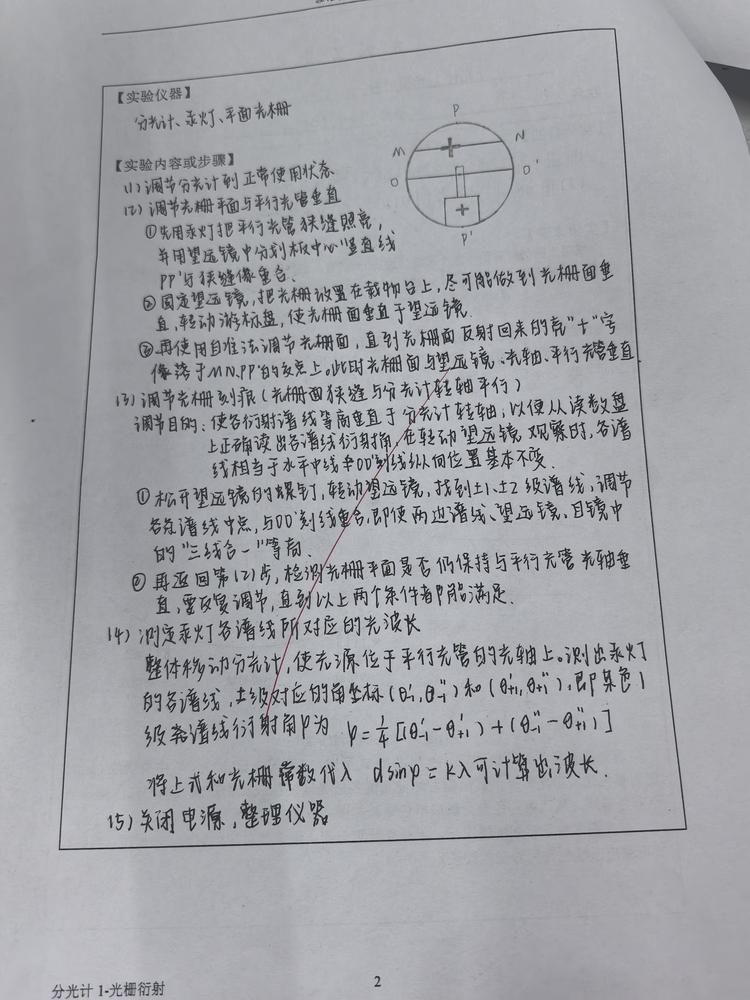 【实验仪器】
分光计、汞灯、平面光栅
P
M
N
O
O'
P'
【实验内容或步骤】
(1) 调节分光计到正常使用状态
(2) 调节光栅平面与平行光管垂直
①先用汞灯把平行光管狭缝照亮,
并用望远镜中分划板中心竖直线
PP'与狭缝像重合.
②固定望远镜,把光栅放置在载物台上,尽可能做到光栅面垂
直,转动游标盘,使光栅面垂直于望远镜.
③再使用自准法调节光栅面,直到光栅面反射回来的亮"十"字
像落于MN.PP'的交点上。此时光栅面与望远镜、光轴、平行光管垂直
(3) 调节光栅刻痕(光栅面狭缝与分光计转轴平行)
调节目的: 使各衍射谱线等高垂直于分光计转轴,以便从读数盘
上正确读出各谱线衍射角,在转动望远镜观察时,各谱
线相当于水平中线OO'刻线纵向位置基本不变.
① 松开望远镜的螺钉,转动望远镜,找到±1、±2级谱线,调节
各条谱线中点,与OO'刻线重合,即使两边谱线、望远镜、目镜中
的"三线合一"等高.
② 再返回第(2)步,检测光栅平面是否仍保持与平行光管光轴垂
直,要反复调节,直到以上两个条件都能满足.
(4) 测定汞灯各谱线所对应的光波长
整体移动分光计,使光源位于平行光管的光轴上。测出汞灯
的各谱线,±级对应的角坐标(θ'₋₁,θ''₋₁)和(θ'₊₁,θ''₊₁),即某色1
级谱线衍射角φ为 φ=¼[(θ'₋₁-θ'₊₁)+(θ''₋₁-θ''₊₁)]
将上式和光栅常数代入 dsinφ=kλ可计算出波长.
(5) 关闭电源,整理仪器
分光计 1-光栅衍射
2